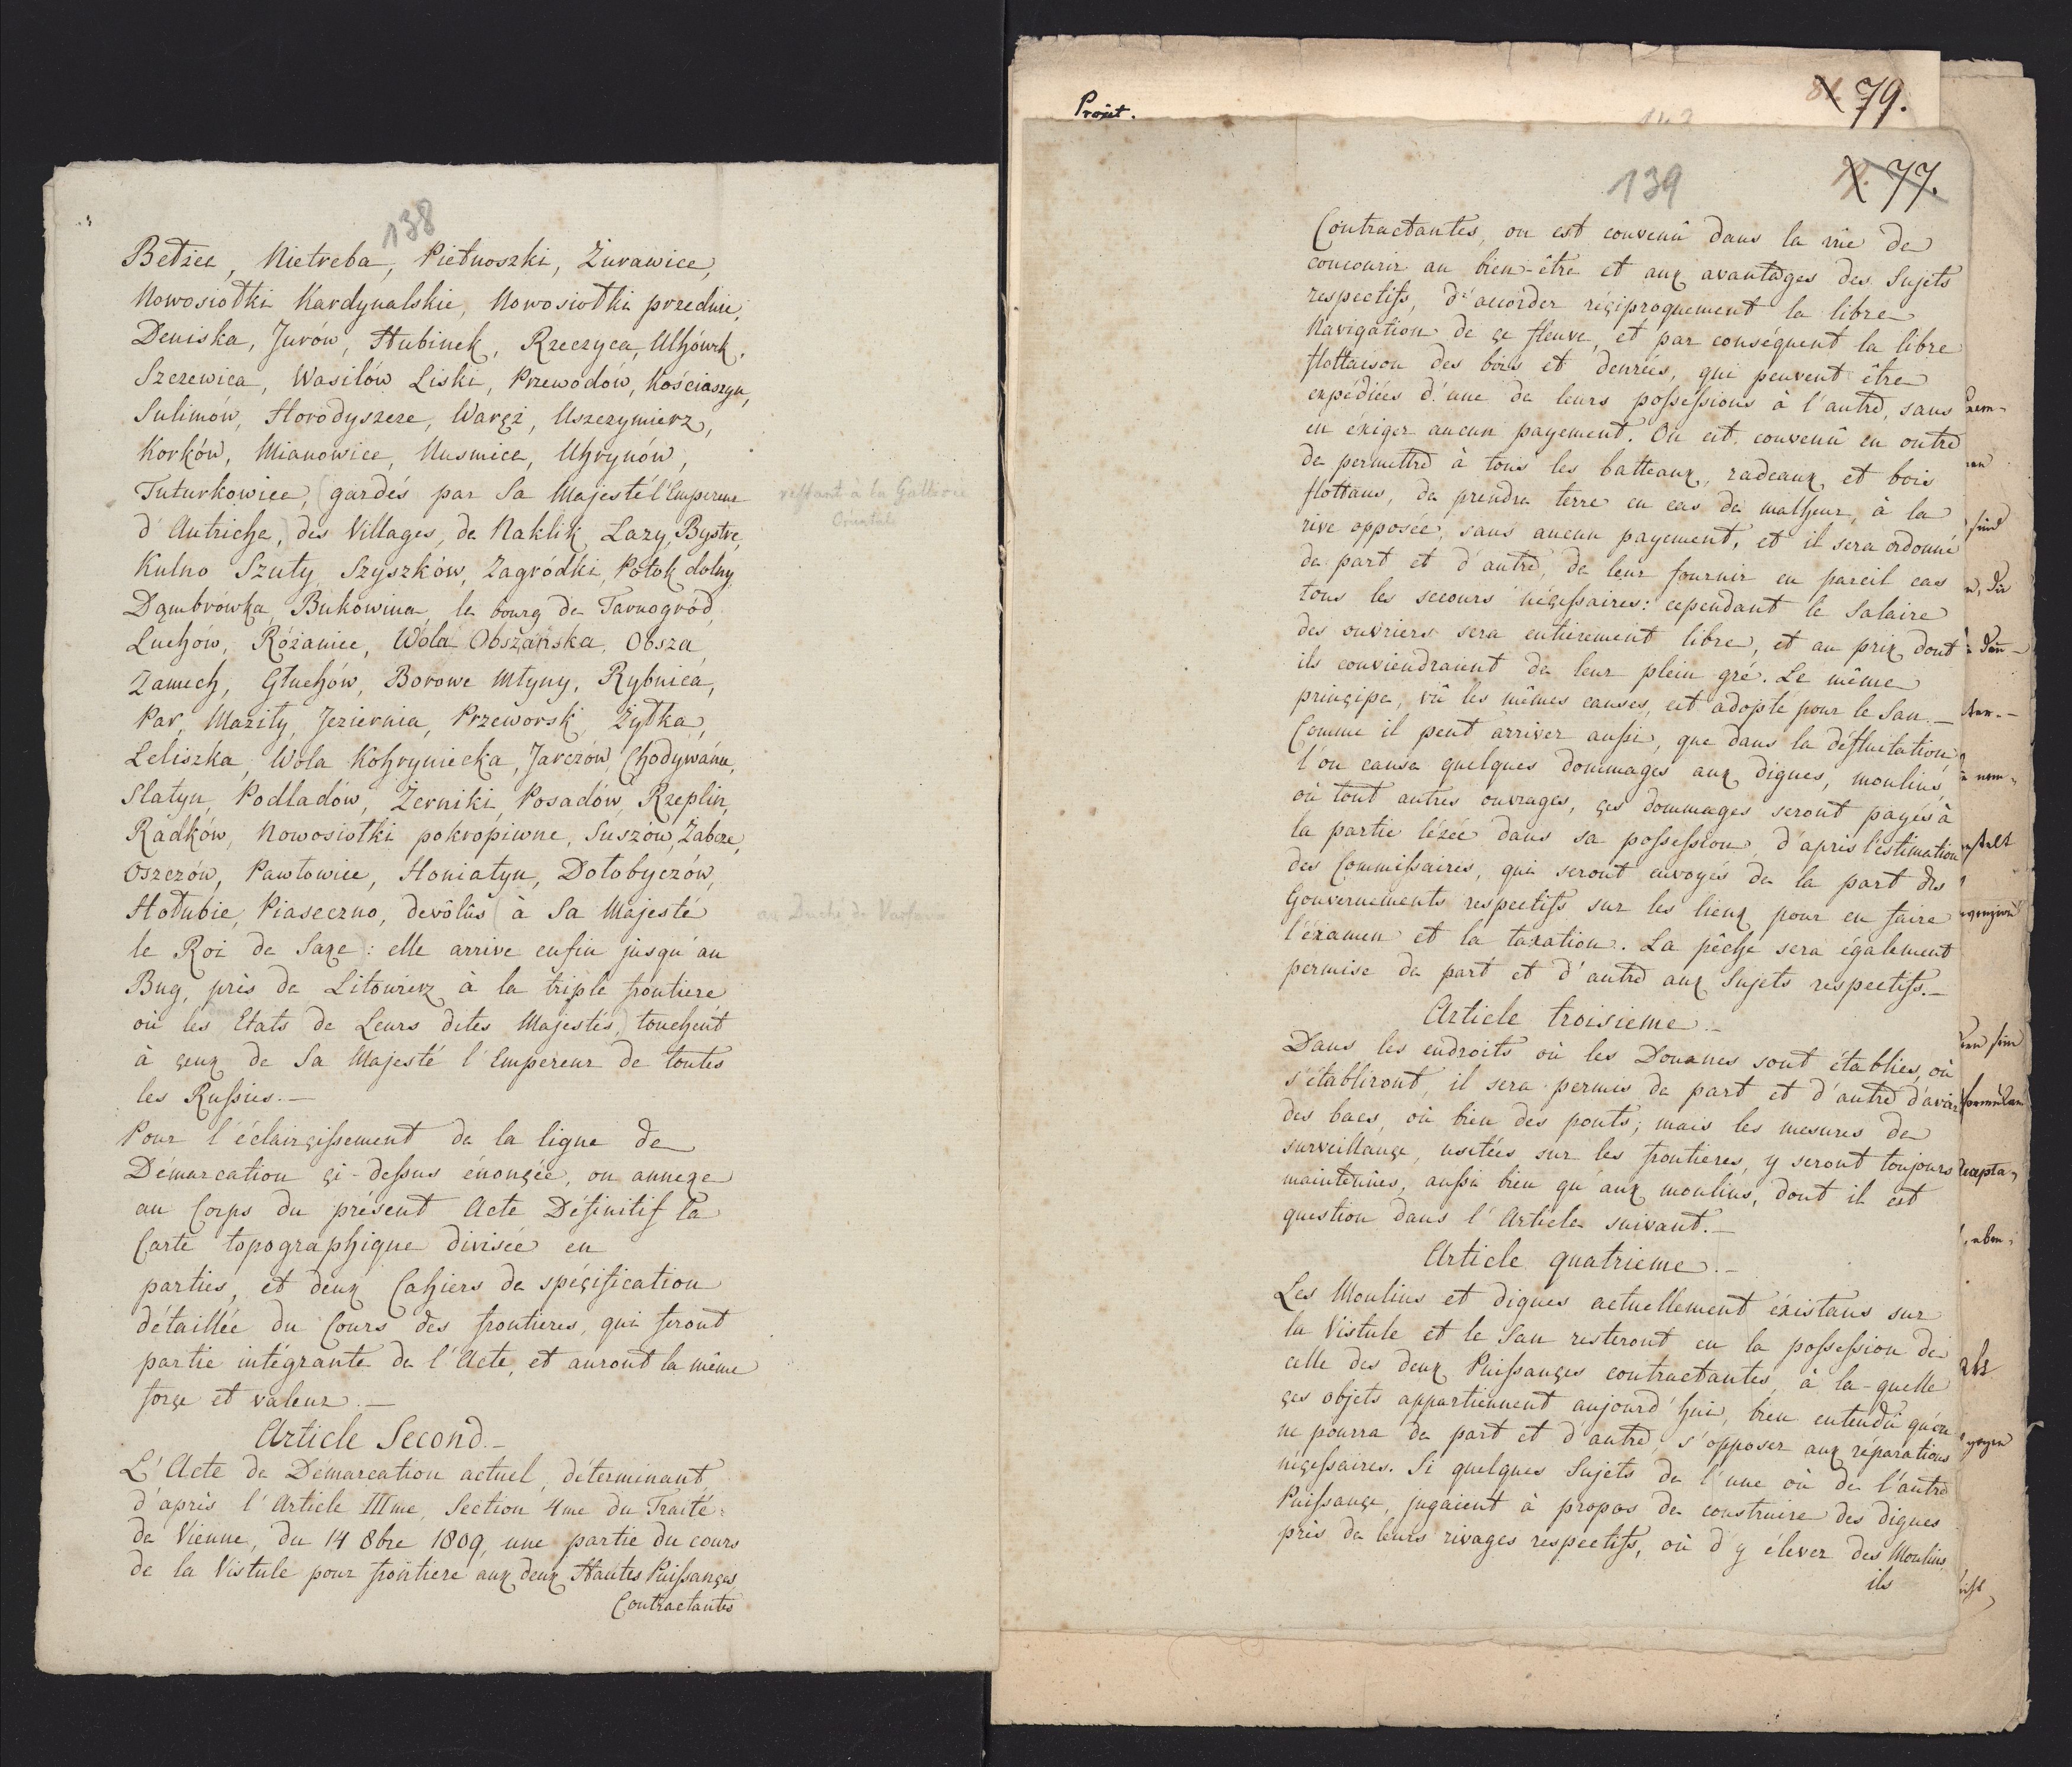 138
Bełżec, Nietreba, Piętnoszki, Żurawice,
Nowosiołki Kardynalskie, Nowosiołki przednie,
Deniska, Jurów, Hubinek, Rzeczyca, Ulhówek,
Szczewica, Wasilów, Liski, Przewodów, Kościaszyn,
Sulimów, Horodyszcze, Waręż, Uszczymierz,
Korków, Mianowice, Nusmice, Uhrynów,
Tuturkowice, (gardés par Sa Majesté l'Empereur
restant à la Gallicie
Orientale
d'Autriche,) des Villages, de Naklik, Lazy, Bystre,
Kulno Szuty, Szyszków, Zagródki, Potok dolny
Dąmbrówka, Bukowina, le bourg de Tarnogród,
Luchów, Różaniec, Wola Obszańska, Obsza,
Zamech, Głuchów, Borowe Młyny, Rybnica,
Par, Maziły, Jeziernia, Przeworsk, Żyłka,
Leliszka, Wola Kohryniecka, Jarczów, Chodywańce,
Slatyn, Podladów, Żerniki, Posadów, Rzeplin,
Radków, Nowosiołki pokropiwne, Suszów, Żabcze,
Oszczów, Pawłowice, Honiatyn, Dołobyczów,
Hołubie, Piaseczno, devôlûs (à Sa Majesté
au Duché de Varsovie
le Roi de Saxe): elle arrive enfin jusqu'au
Bug, près de Litowierz à la triple frontiere
où les Etats de Leurs dites Majestés, touchent
à çeux de Sa Majesté l'Empereur de toutes
les Russies.—
Pour l'éclairçissement de la ligne de
Démarcation çi-dessus énonçée, on annexe
au Corps du présent Acte Définitif la
Carte topographique divisée en
parties, et deux Cahiers de spéçification
détaillée du Cours des frontieres, qui feront
partie intégrante de l'Acte, et auront la même
forçe et valeur.—
Article Second.—
L'Acte de Démarcation actuel, déterminant,
d'après l'Article IIIme, Section 4me du Traité
de Vienne, du 14 8bre 1809, une partie du cours
de la Vistule pour frontiere aux deux Hautes Puissançes
Contractantes
79.
Proät.
139
77.
Contractantes, on est convenû dans la vûe de
concourir au bien-être et aux avantages des Sujets
respectifs, d'accorder réçiproquement la libre
Navigation de çe fleuve, et par conséquent la libre
flottaison des bois et denrées, qui peuvent être
expédiées d'une de leurs possessions à l'autre, sans
en éxiger aucun payement. On est convenû en outre
de permettre à tous les batteaux, radeaux et bois
flottans, de prendre terre en cas de malheur, à la
rive opposée, sans aucun payement, et il sera ordonné
de part et d'autre, de leur fournir en pareil cas
tous les secours néçessaires: cependant le Salaire
des ouvriers sera entierement libre, et au prix dont
ils conviendraient de leur plein gré. Le même
prinçipe, vû les mêmes causes, est adopté pour le San.—
Comme il peut arriver aussi, que dans la défluitation,
l'on cause quelques dommages aux digues, moulins,
où tout autres ouvrages, çes dommages seront payés à
la partie lézée dans sa possession, d'après l'estimation
des Commissaires, qui seront envoyés de la part des
Gouvernements respectifs sur les lieux pour en faire
l'éxamen et la taxation. La pêche sera également
permise de part et d'autre aux Sujets respectifs.—
Article troisieme.—
Dans les endroits où les Douanes sont établies, où
s'établiront, il sera permis de part et d'autre d'avoir
des bacs, où bien des ponts; mais les mesures de
surveillançe, usitées sur les frontieres, y seront toujours
maintenûes, aussi bien qu'aux moulins, dont il est
question dans l'Article suivant.—
Article quatrieme.—
Les Moulins et digues actuellement éxistans sur
la Vistule et le San resteront en la possession de
celle des deux Puissançes contractantes, à la-quelle
çes objets appartiennent aujourd'hui, bien entendû qu'on
ne pourra de part et d'autre, s'opposer aux réparations
néçessaires. Si quelques Sujets de l'une où de l'autre
Puissançe, jugaient à propos de construire des digues
près de leurs rivages respectifs, où d'y élever des Moulins,
ils